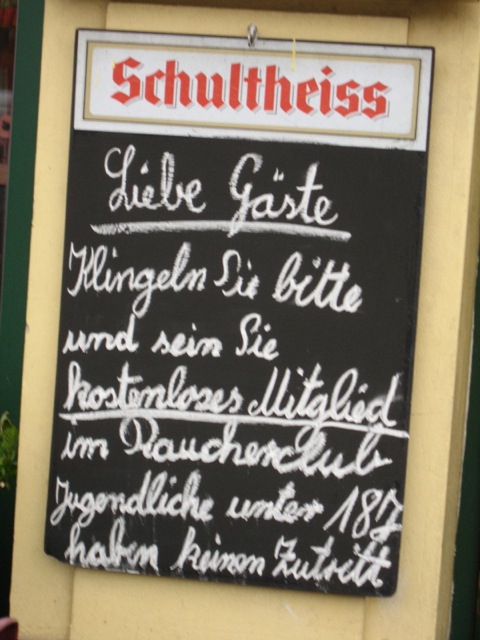 Schultheiss
Liebe Gäste
Klingeln Sie bitte
und sein Sie
kostenloses Mitglied
im Raucherclub
Jugendliche unter 18J
haben keinen Zutritt